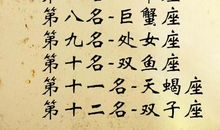 第八名-巨蟹座
第九名-处女座
第十名-双鱼座
第十一名-天蝎座
第十二名-双子座